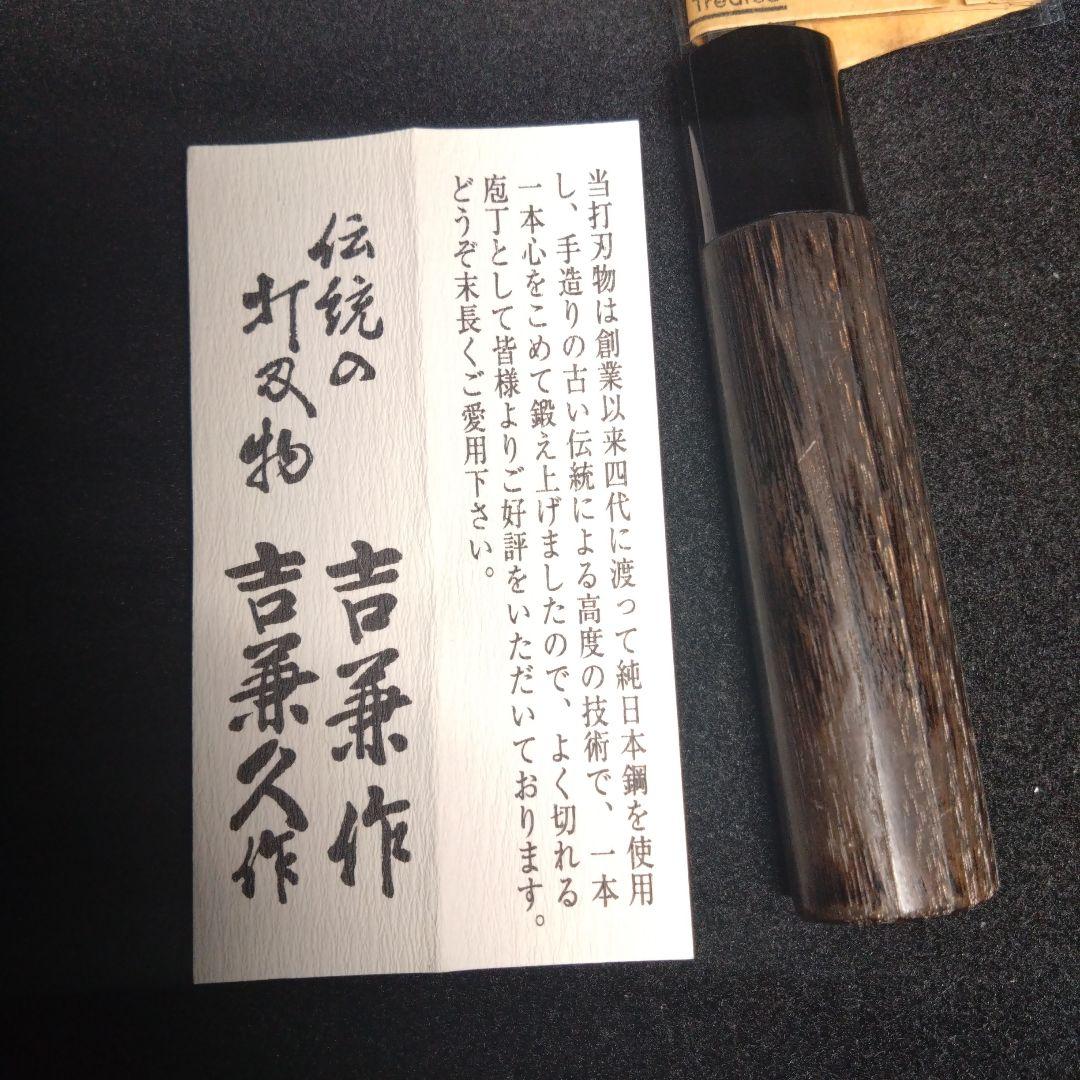 当打刃物は創業以来四代に渡って純日本鋼を使用
し、手造りの古い伝統による高度の技術で、一本
一本心をこめて鍛え上げましたので、よく切れる
庖丁として皆様よりご好評をいただいております。
どうぞ末長くご愛用下さい。
伝統の
打刃物
吉兼作
吉兼久作